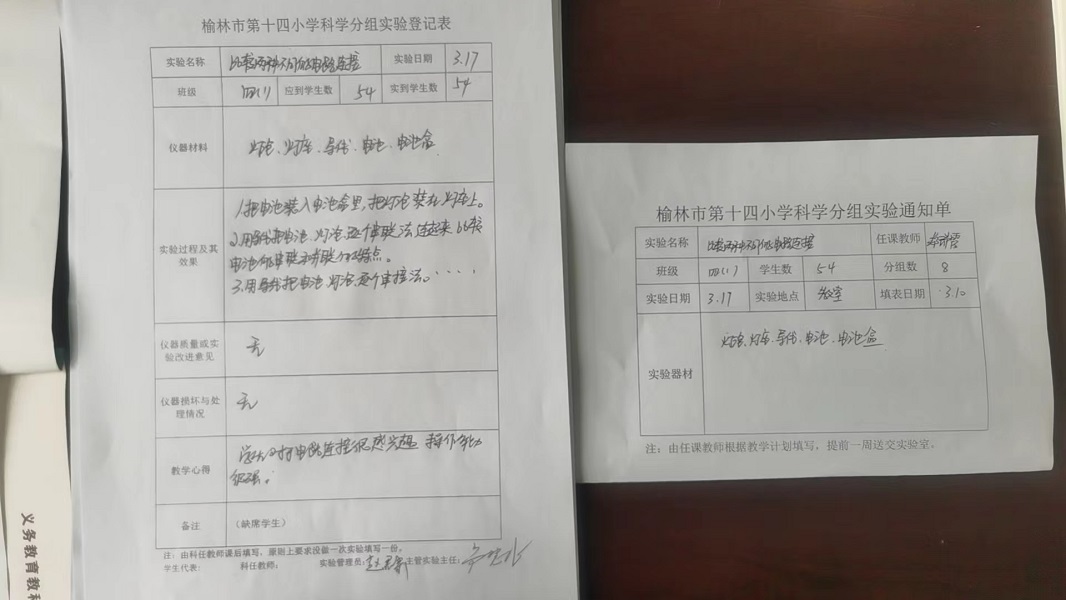 榆林市第十四小学科学分组实验登记表
实验名称 比较两种不同的电路连接 实验日期 3.17
班级 四(1) 应到学生数 54 实到学生数 54
仪器材料 灯泡、灯座、导线、电池、电池盒
实验过程及其效果
1.把电池装入电池盒里,把灯泡装在灯座上。
2.用导线把电池、灯泡逐个串联法连起来 比较
电池的串联和并联的特点。
3.用导线把电池、灯泡逐个串接法。.....
仪器质量或实验改进意见 无
仪器损坏与处理情况 无
教学心得 学生对于电路连接很感兴趣 操作能力
很强。
备注 (缺席学生)
注:由科任教师课后填写,原则上要求没做一次实验填写一份。
学生代表: 科任教师: 实验管理员: 主管实验主任:
义务教育教科
榆林市第十四小学科学分组实验通知单
实验名称 比较两种不同的电路连接 任课教师
班级 四(1) 学生数 54 分组数 8
实验日期 3.17 实验地点 教室 填表日期 3.10
实验器材 灯泡、灯座、导线、电池、电池盒
注:由任课教师根据教学计划填写,提前一周送交实验室。